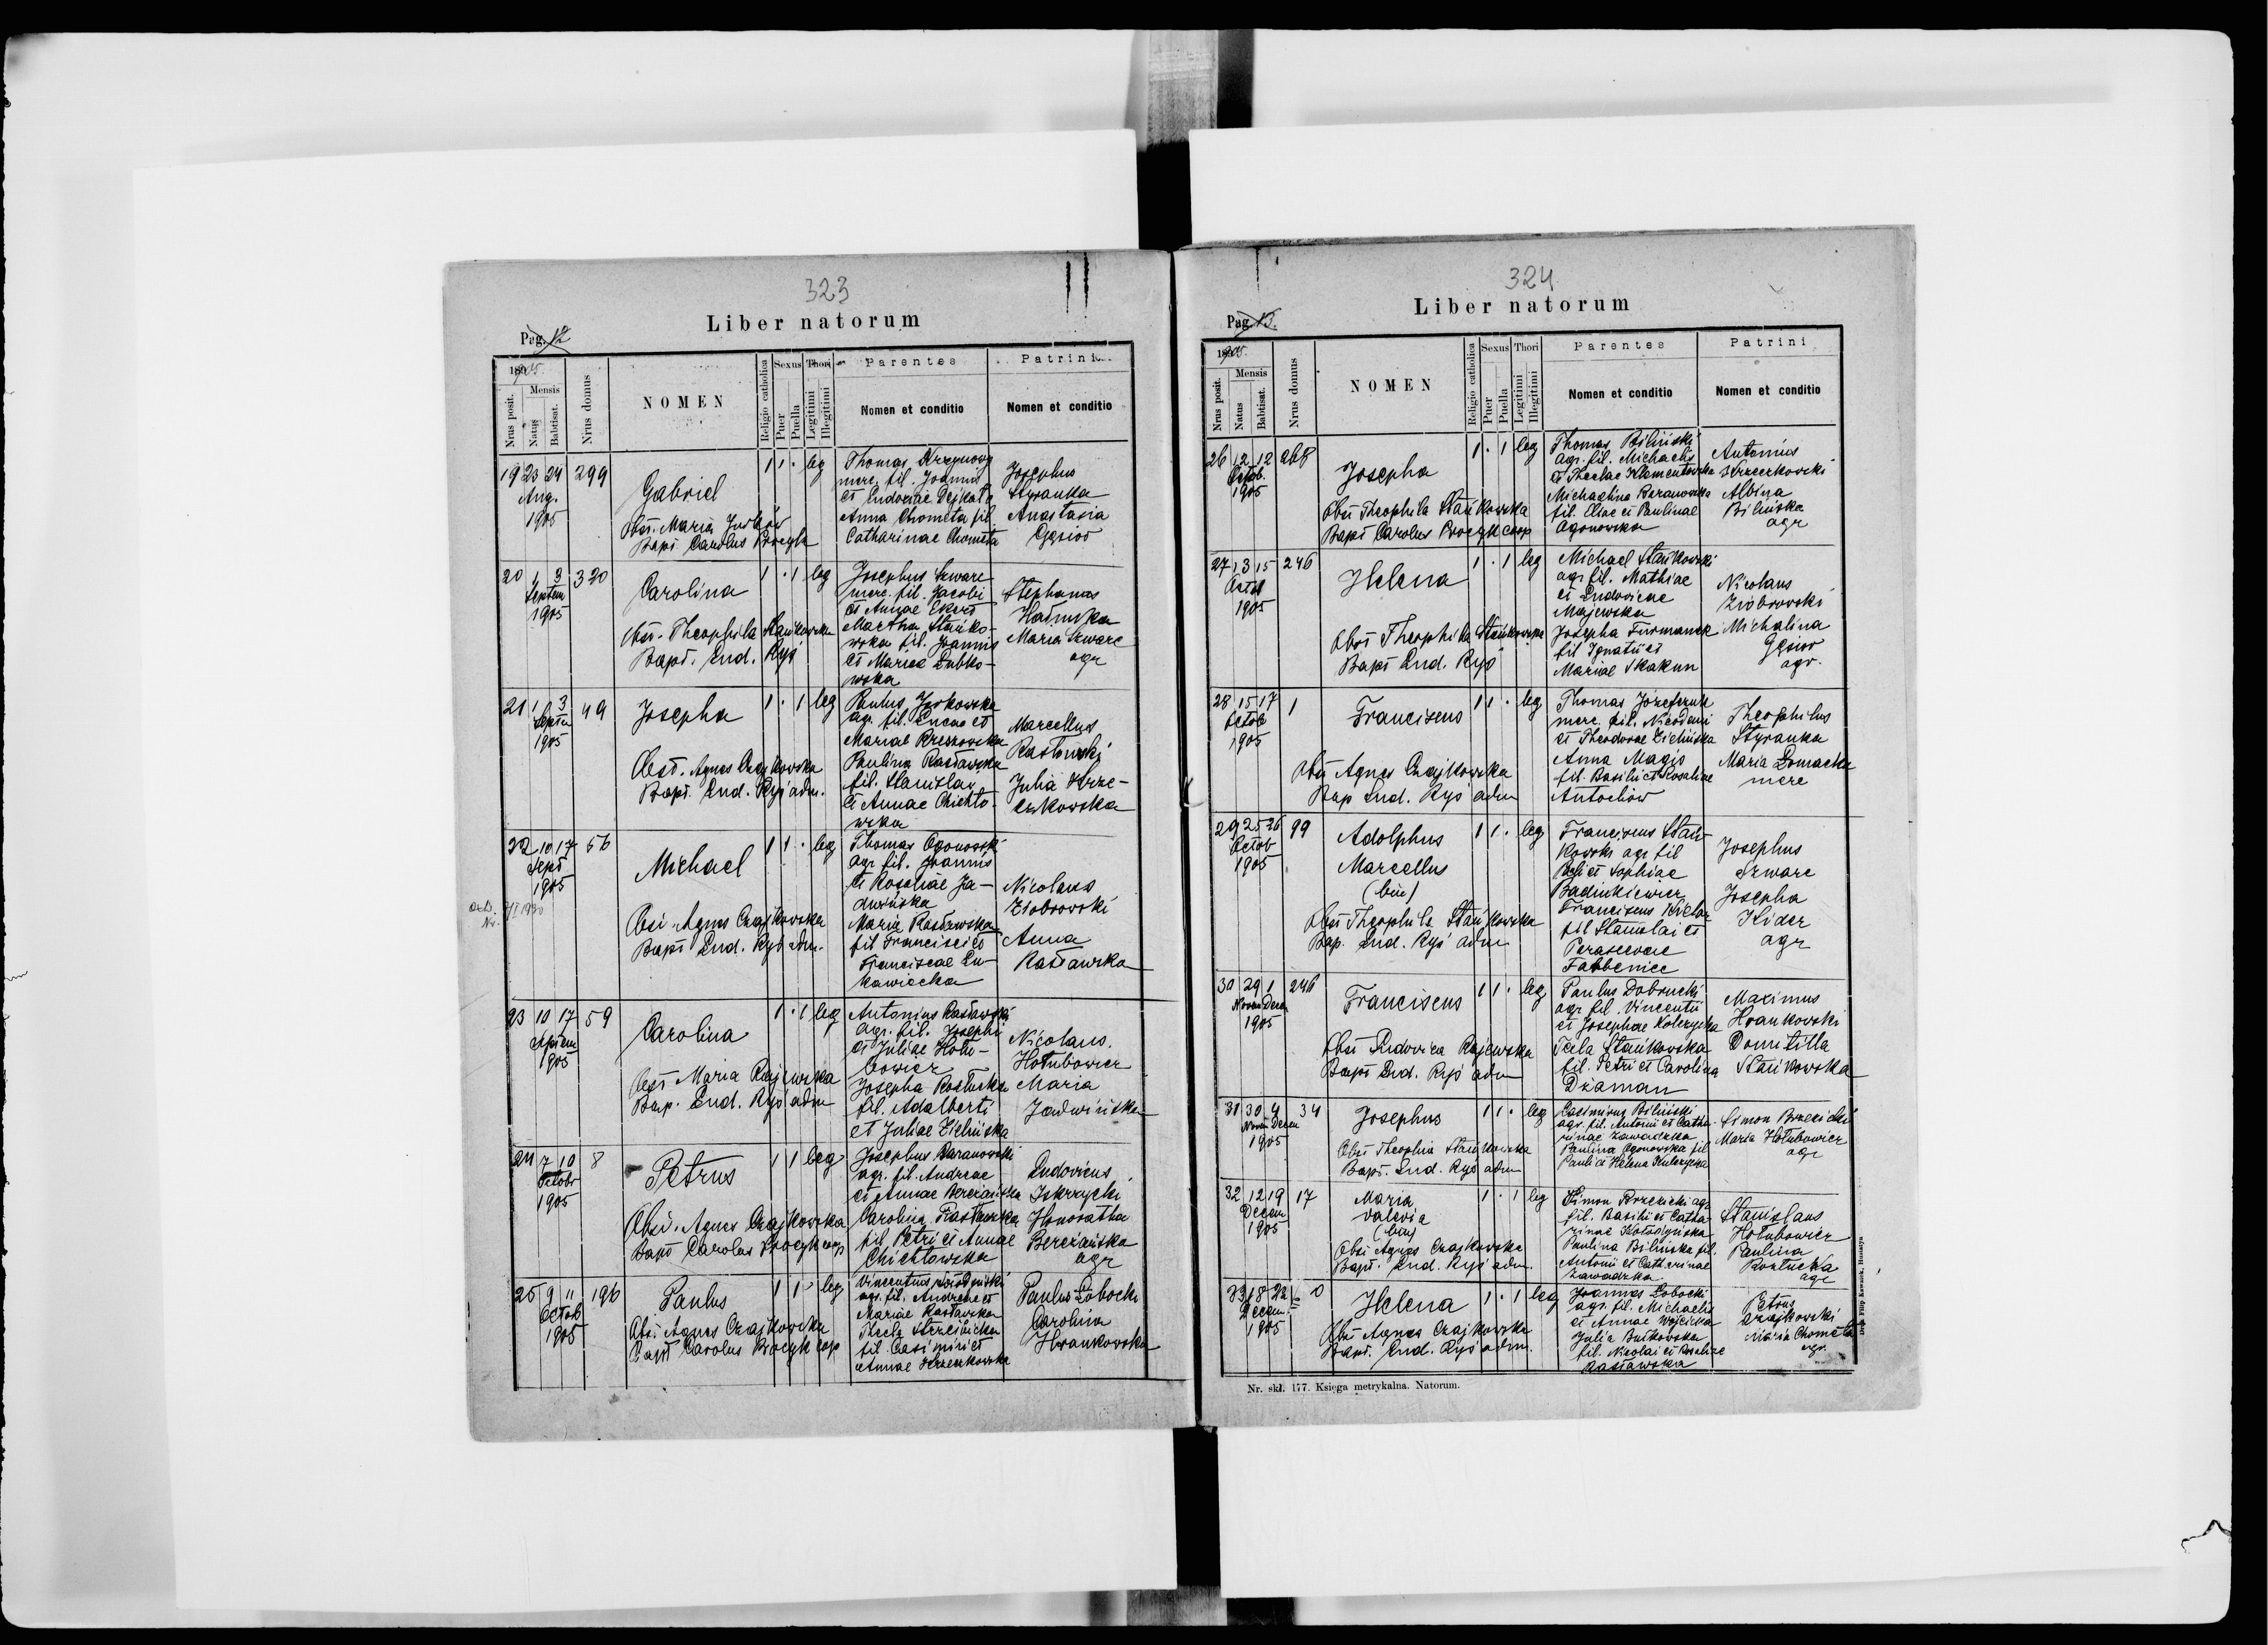 323
Liber natorum
Pag. 12
1905.
Nrus posit.
Mensis
Natus
Babtisat.
Nrus domus
NOMEN
Religio catholica
Sexus
Puer
Puella
Thori
Legitimi
Illegitimi
Parentes
Nomen et conditio
Patrini
Nomen et conditio
19 23 24 299
Aug.
1905
Gabriel
Obst. Maria
Bapt. Carolus Procyk
1 1 · leg
Thomas
merc. fil. Joannis
et Eudoxiae
Anna Chometa fil
Catharinae Chometa
Josephus
Styranka
Anastasia
Gąsior
20 1 3 320
Septem
1905
Carolina
Obst. Theophila Stańkowska
Bapt. Lud. Ryś
1 · 1 leg
Josephus Szware
merc. fil. Jacobi
et Annae Ekert
Martha Stańko-
wska fil. Joannis
et Mariae Dubko-
wska
Stephanus
Maria Szware
agr
21 1 3 49
Septem
1905
Josepha
Obst. Agnes Czajkowska
Bapt. Lud. Ryś adm.
1 · 1 leg
Paulus
agr. fil. Lucae et
Mariae
Paulina Rastawska
fil. Stanislai
et Annae Chichto-
wska
Marcellus
Rastawski
Julia Krze-
czkowska
22 10 17 56
Sept
1905
Michael
Obst. Agnes Czajkowska
Bapt. Lud. Ryś adm.
1 1 · leg
Thomas Ogonowski
agr. fil. Joannis
et Rosaliae Ja-
dwińska
Maria Rastawska
fil Francisci et
Franciscae Lu-
kawiecka
Nicolaus
Ziobrowski
Anna
Rastawska
23 10 17 59
Septem
1905
Carolina
Obst Maria Rajewska
Bap. Lud. Ryś adm
1 · 1 leg
Antonius Rastawski
agr. fil. Josephi
et Juliae Hołu-
bowicz
Josepha Roztucka
fil. Adalberti
et Juliae Zielińska
Nicolaus
Hołubowicz
Maria
Jadwińska
24 7 10 8
Octobr
1905
Petrus
Obst. Agnes Czajkowska
Bapt Carolus Procyk coop
1 1 leg
Josephus Baranowski
agr. fil. Andreae
et Annae Bereżańska
Carolina Rastawska
fil Petri et Annae
Chichtowska
Ludovicus
Iskrzycki
Honoratha
Bereżańska
agr
25 9 11 196
Octob
1905
Paulus
Obst. Agnes Czajkowska
Bapt Carolus Procyk coop
1 1 · leg
Vincentius
agr. fil. Andreae et
Mariae Rastawska
Thecla
fil. Casimiri et
Annae Krzeczkowska
Paulus Łobocki
Carolina
Hrankowska
324
Liber natorum
Pag. 13.
1905.
Nrus posit.
Mensis
Natus
Babtisat.
Nrus domus
NOMEN
Religio catholica
Sexus
Puer
Puella
Thori
Legitimi
Illegitimi
Parentes
Nomen et conditio
Patrini
Nomen et conditio
26 12 12 268
Octob.
1905
Josepha
Obst Theophila Stańkowska
Bapt Carolus Procyk coop
1 · 1 leg
Thomas Biliński
agr. fil. Michaelis
et Theclae Klamentowska
Michaelina Baranowska
fil. Eliae et Paulinae
Ogonowska
Antonius
Krzeczkowski
Albina
Bilińska
agr
27 13 15 246
Octob
1905
Helena
Obst Theophila Stańkowska
Bapt Lud. Ryś
1 · 1 leg
Michael Stańkowski
agr. fil. Mathiae
et Ludovicae
Majewska
Josepha Furmanek
fil Ignatii et
Mariae Skakun
Nicolaus
Ziobrowski
Michalina
Gąsior
agr.
28 15 17 1
Octob
1905
Franciscus
Obst Agnes Czajkowska
Bap Lud. Ryś adm
1 1 · leg
Thomas Józefczuk
merc. fil. Nicodemi
et Theodorae Zielińska
Anna Magis
fil. Basilii et Rosaliae
Antochów
Theophilus
Styranka
Maria Domacka
merc
29 25 26 99
Octob
1905
Adolphus
Marcellus
(bin)
Obst Theophila Stańkowska
Bap. Lud. Ryś adm
1 1 · leg
Franciscus Stań-
kowski agr fil
et Sophiae
Franciscus
fil Stanislai et
Parascevae
Josephus
Szware
Josepha
Kider
agr
30 29 1 246
Novem Decem
1905
Franciscus
Obst Ludovica Rajewska
Bapt Lud. Ryś adm
1 1 · leg
Paulus Dobrucki
agr fil. Vincentii
et Josephae
Tecla Stańkowska
fil. Petri et Carolina
Diaman
Maximus
Hrankowski
Domitilla
Stańkowska
31 30 4 34
Novem Decem
1905
Josephus
Obst Theophila Stańkowska
Bapt. Lud. Ryś adm
1 1 · leg
Casimirus Biliński
agr. fil. Antonii et Catha-
rinae Zawadzka
Paulina Ogonowska fil
Pauli et Helena
Simon Brzezicki
Maria Hołubowicz
agr
32 12 19 17
Decem
1905
Maria
Valeria
(bin)
Obst Agnes Czajkowska
Bapt. Lud. Ryś adm.
1 · 1 leg
Simon Brzezicki agr
fil. Basilii et Catha-
rinae
Paulina Bilińska fil.
Antonii et Catherinae
Zawadzka
Stanislaus
Hołubowicz
Paulina
Roztucka
agr
33 18 22
Decem.
1905
Helena
Obst Agnes Czajkowska
Bapt. Lud. Ryś adm.
1 · 1 leg
Joannes Łobocki
agr. fil. Michaelis
et Annae Wójcicka
Julia
fil. Nicolai et Rosaliae
Rastawska
Petrus
Czajkowski
Maria Chometa
agr.
Nr. skł. 177. Księga metrykalna. Natorum.
Druk Filip Kawalek, Husiatyn